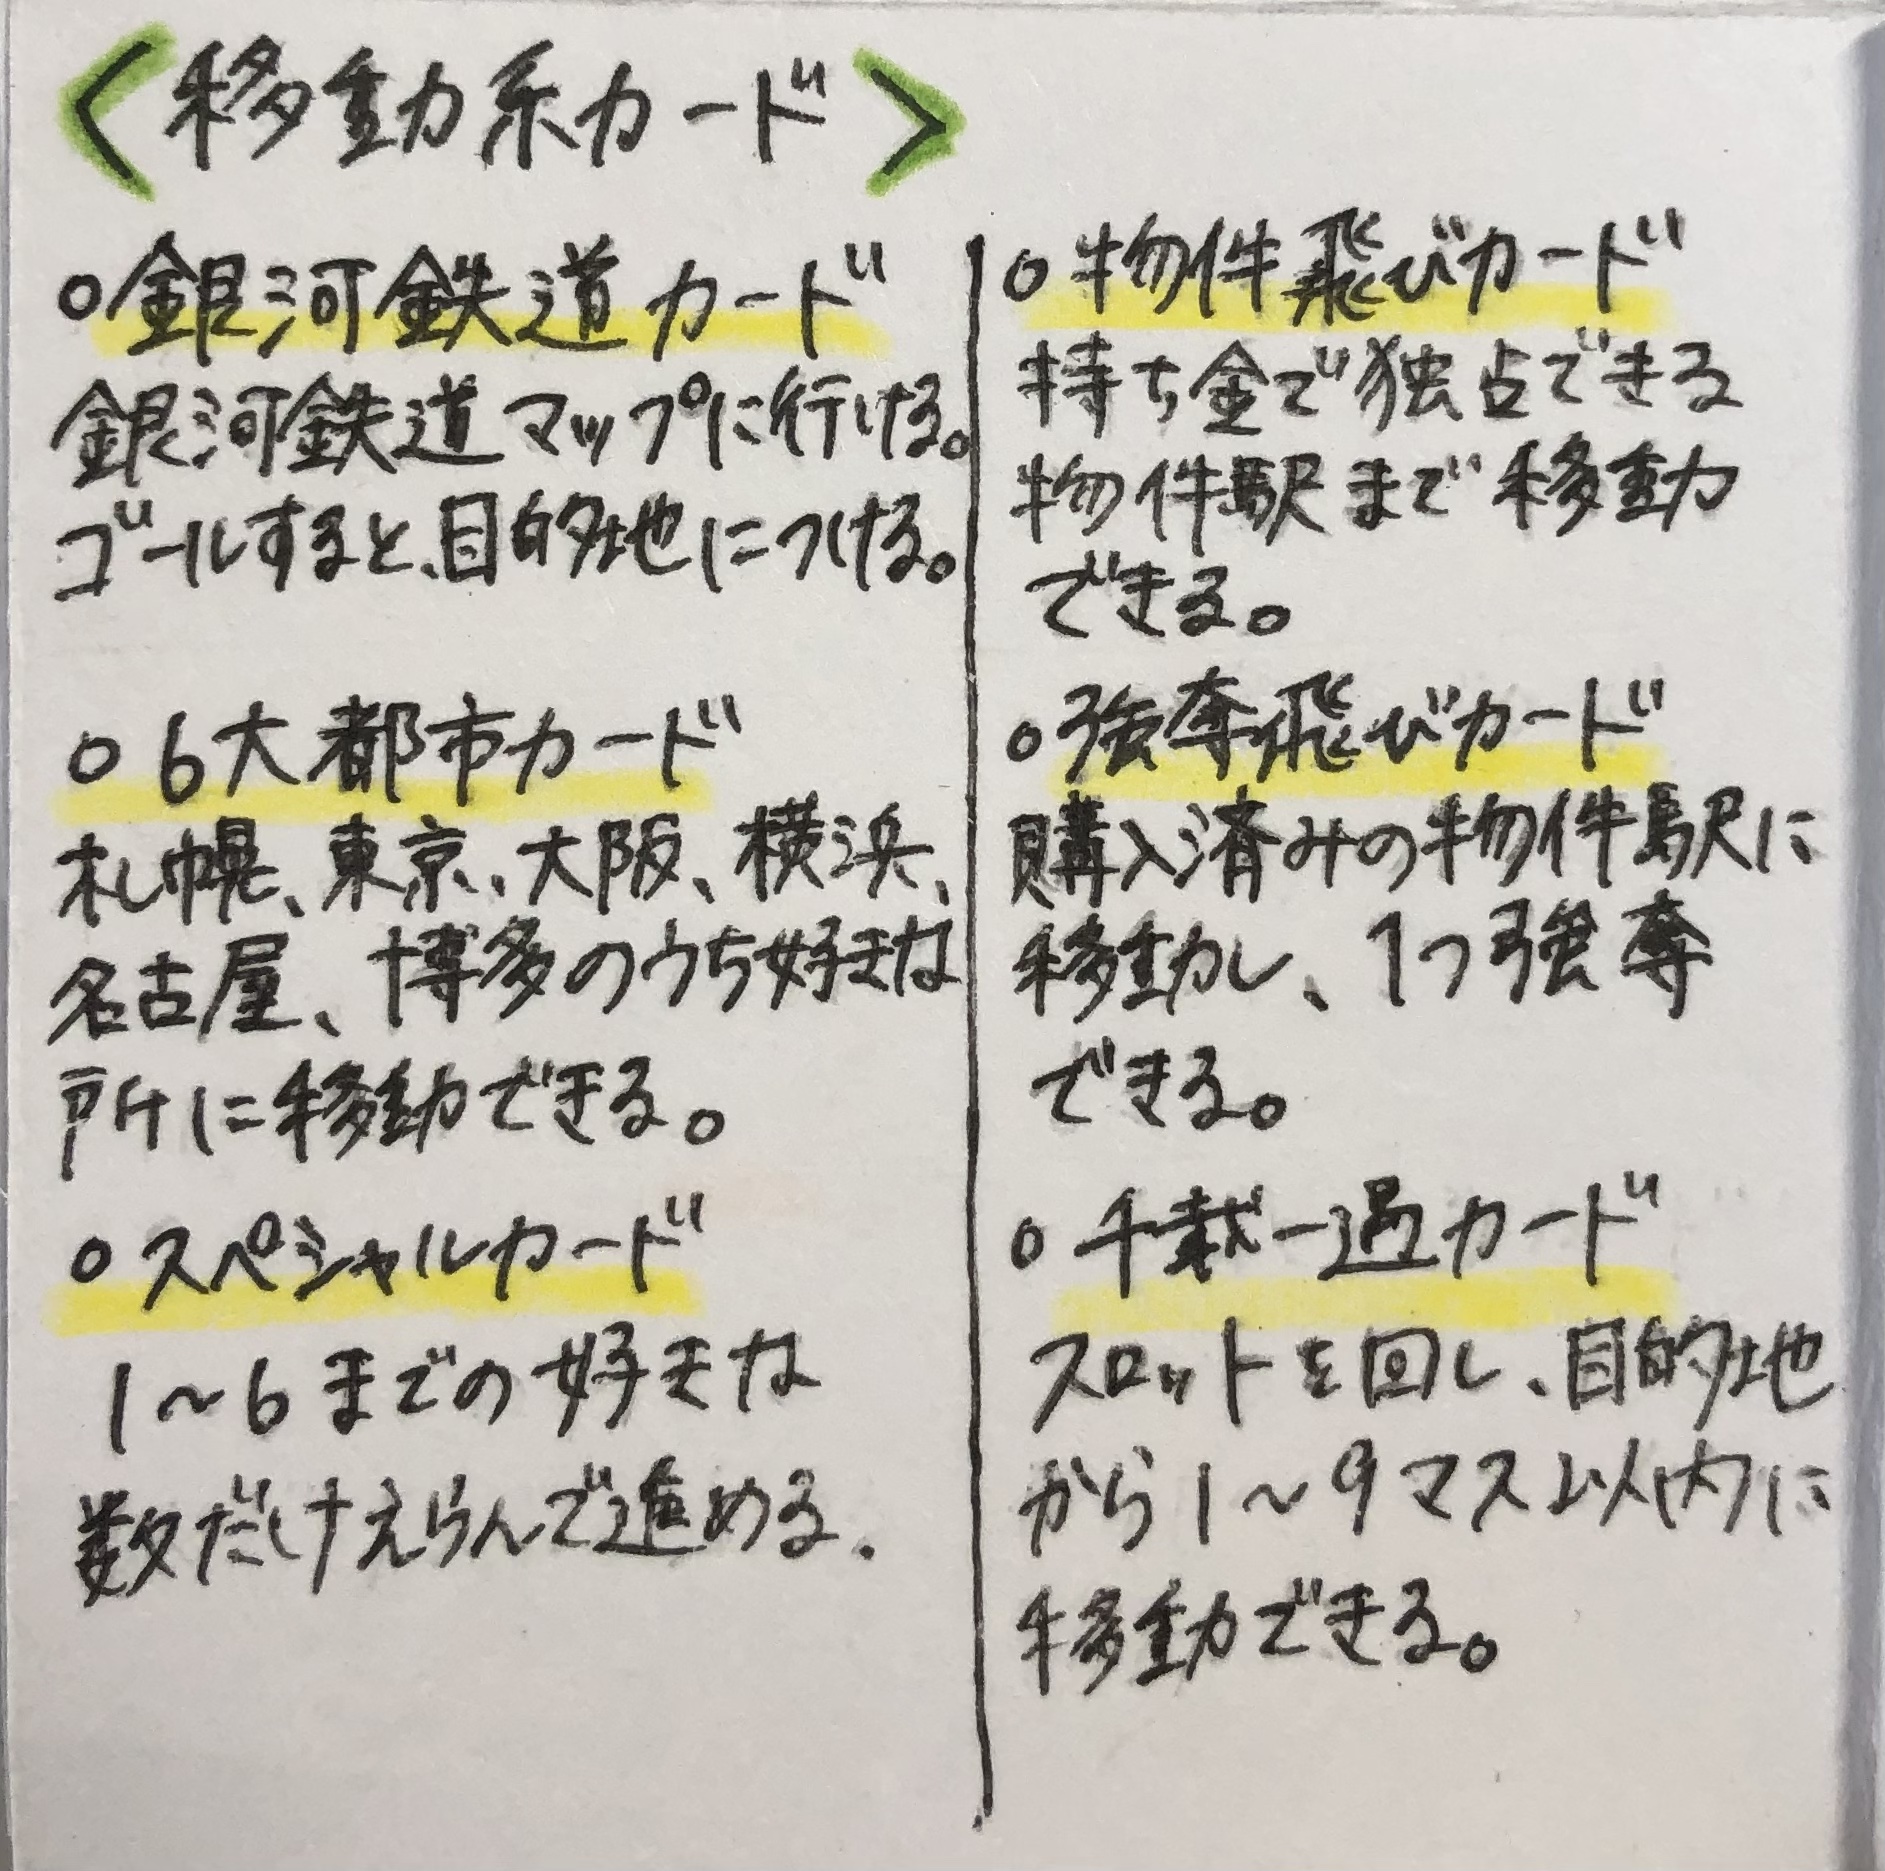 <移動系カード>
○銀河鉄道カード
銀河鉄道マップに行ける。
ゴールすると、目的地につける。
○6大都市カード
札幌、東京、大阪、横浜、
名古屋、博多のうち好きな
所に移動できる。
○スペシャルカード
1～6までの好きな
数だけえらんで進める.
○物件飛びカード
持ち金で独占できる
物件駅まで移動
できる。
○強奪飛びカード
購入済みの物件駅に
移動し、1つ強奪
できる。
○千載一遇カード
スロットを回し、目的地
から1～9マス以内に
移動できる。